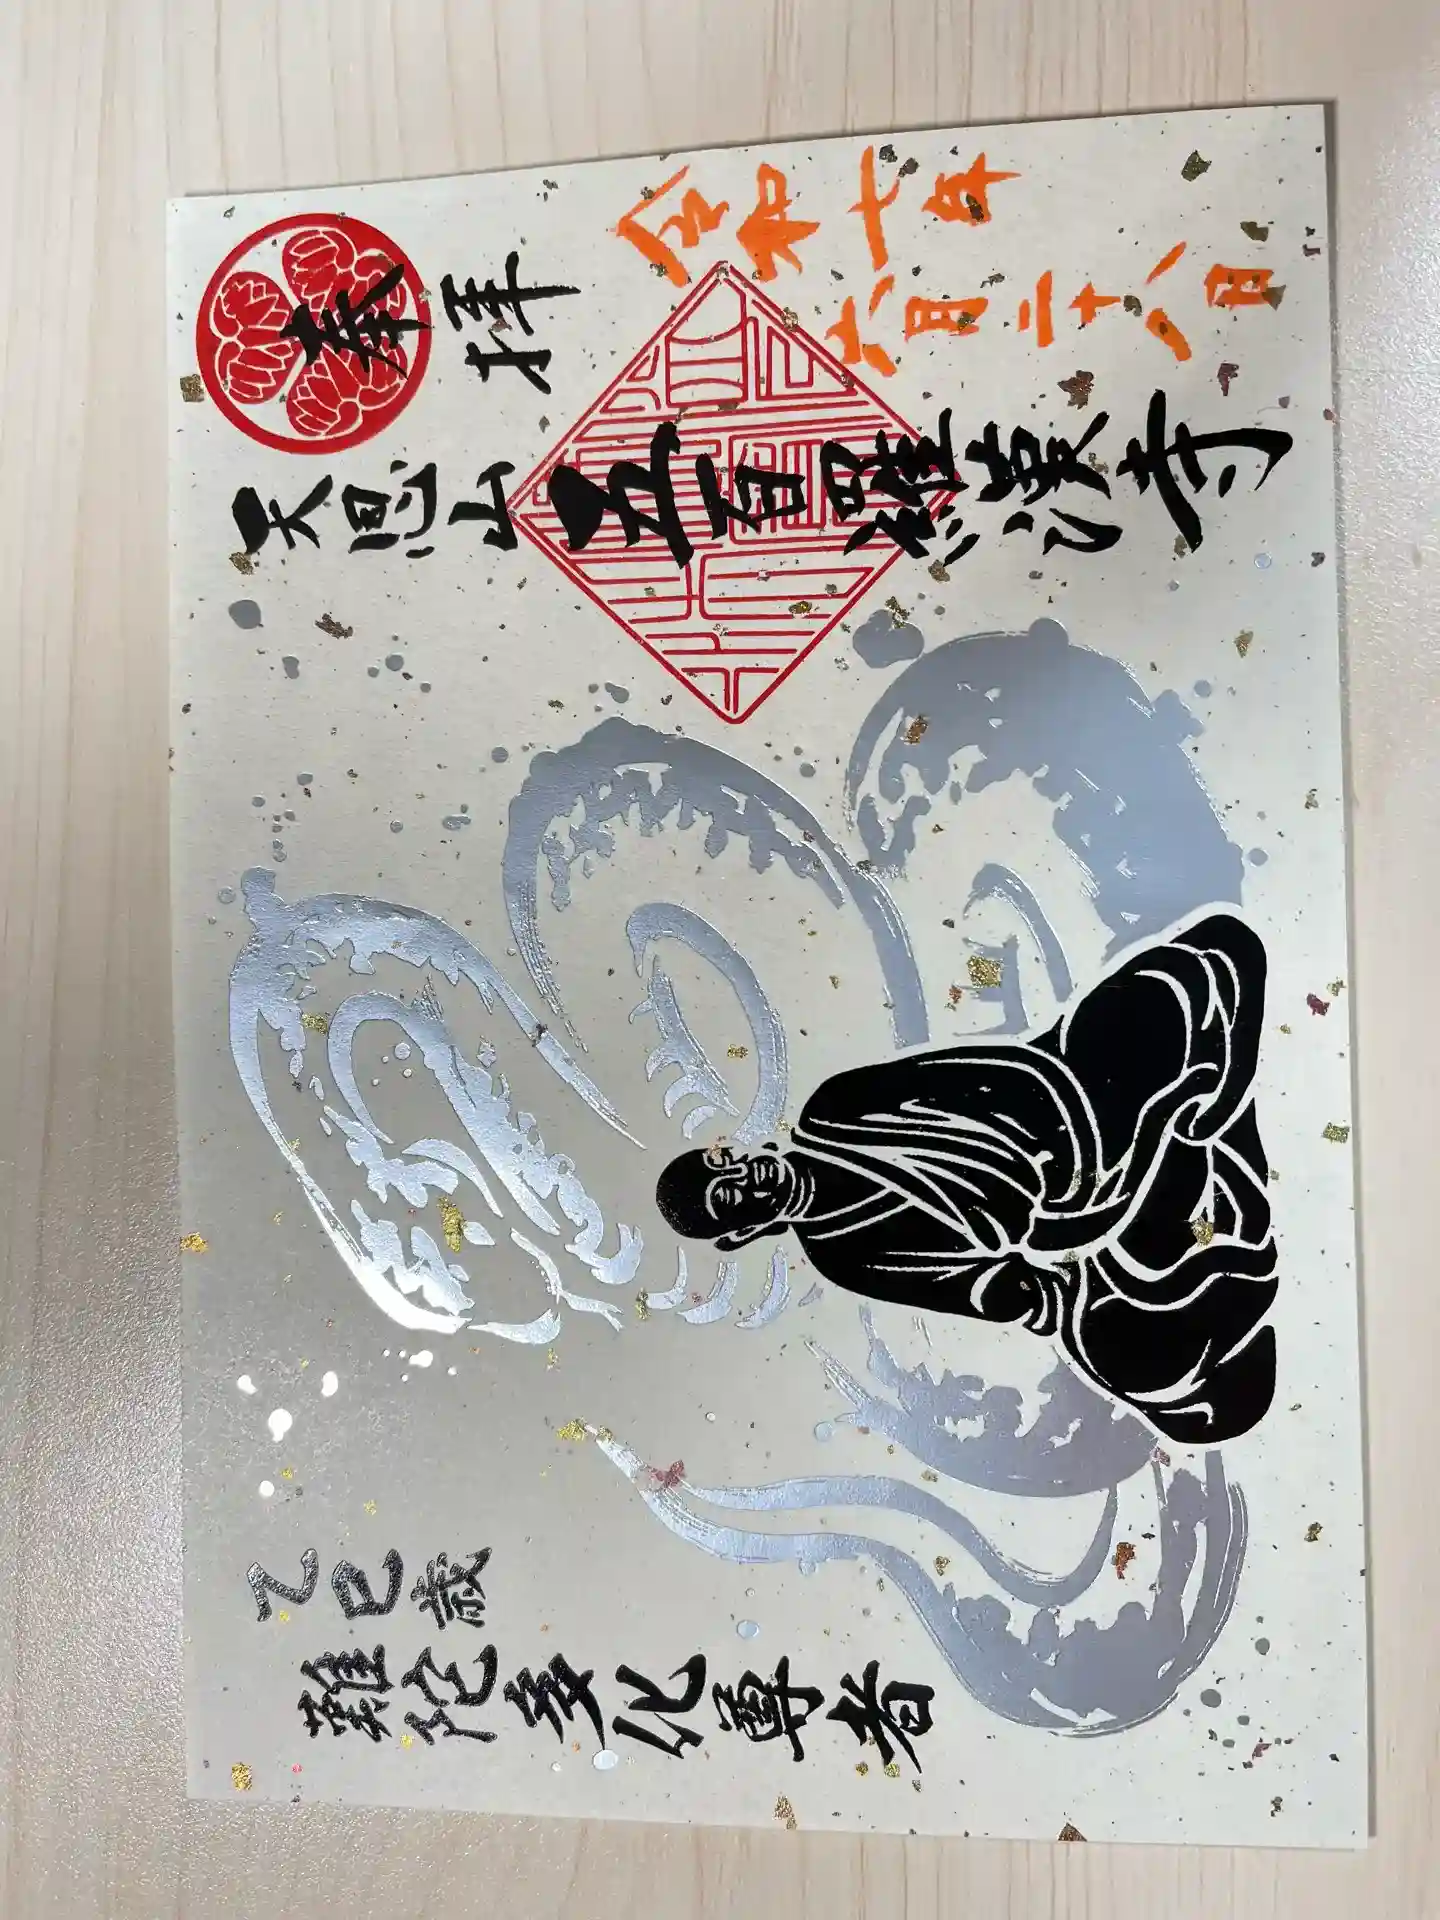 令和七年
六月二十八日
奉拝
天恩山五百羅漢寺
乙巳歳
難陀多化尊者